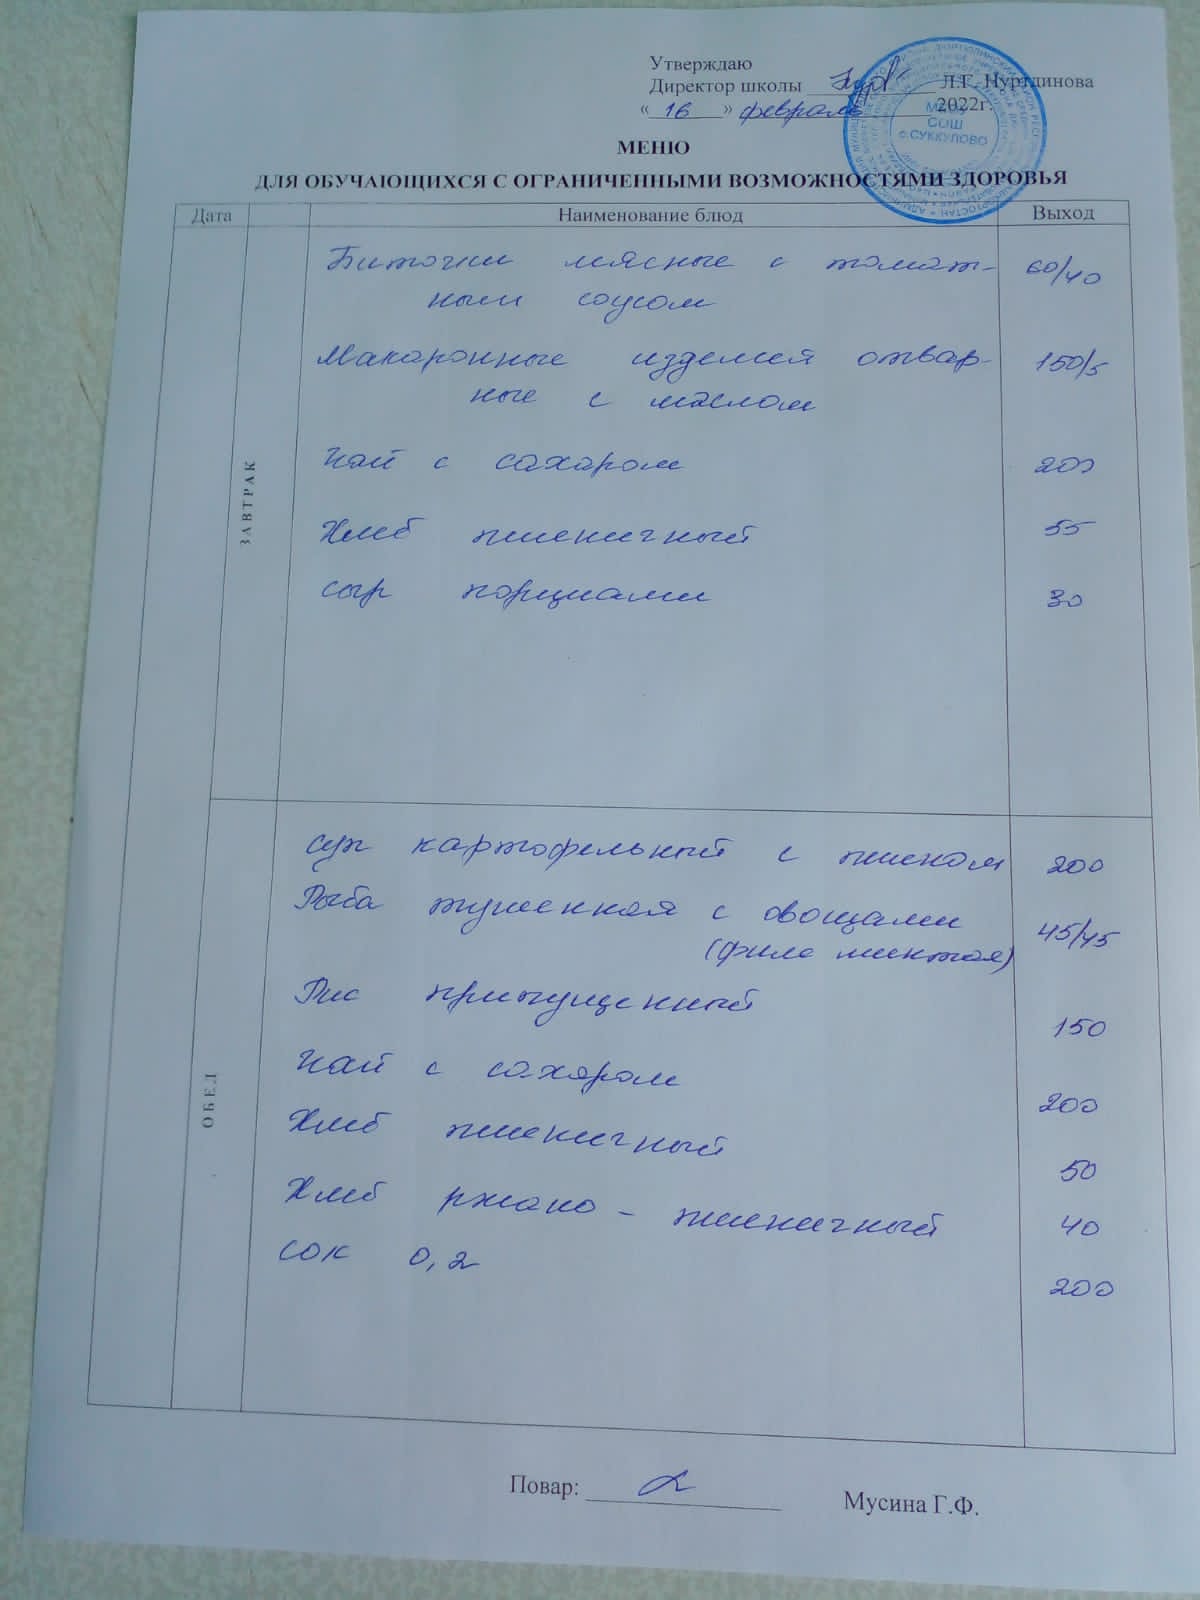 Утверждаю
Директор школы Л.Г. Нуртдинова
« 16 » февраль 2022г.
МБОУ
СОШ
с.СУККУЛОВО
МЕНЮ
ДЛЯ ОБУЧАЮЩИХСЯ С ОГРАНИЧЕННЫМИ ВОЗМОЖНОСТЯМИ ЗДОРОВЬЯ
Дата Наименование блюд Выход
ЗАВТРАК
Биточки мясные с томат- 60/40
ным соусом
Макаронные изделия отвар- 150/5
ные с маслом
Чай с сахаром 200
Хлеб пшеничный 55
сыр порциями 30
ОБЕД
суп картофельный с пшеном 200
Рыба тушенная с овощами 45/45
(филе минтая)
Рис припущенный 150
Чай с сахаром 200
Хлеб пшеничный 50
Хлеб ржано - пшеничный 40
сок 0,2 200
Повар: Мусина Г.Ф.